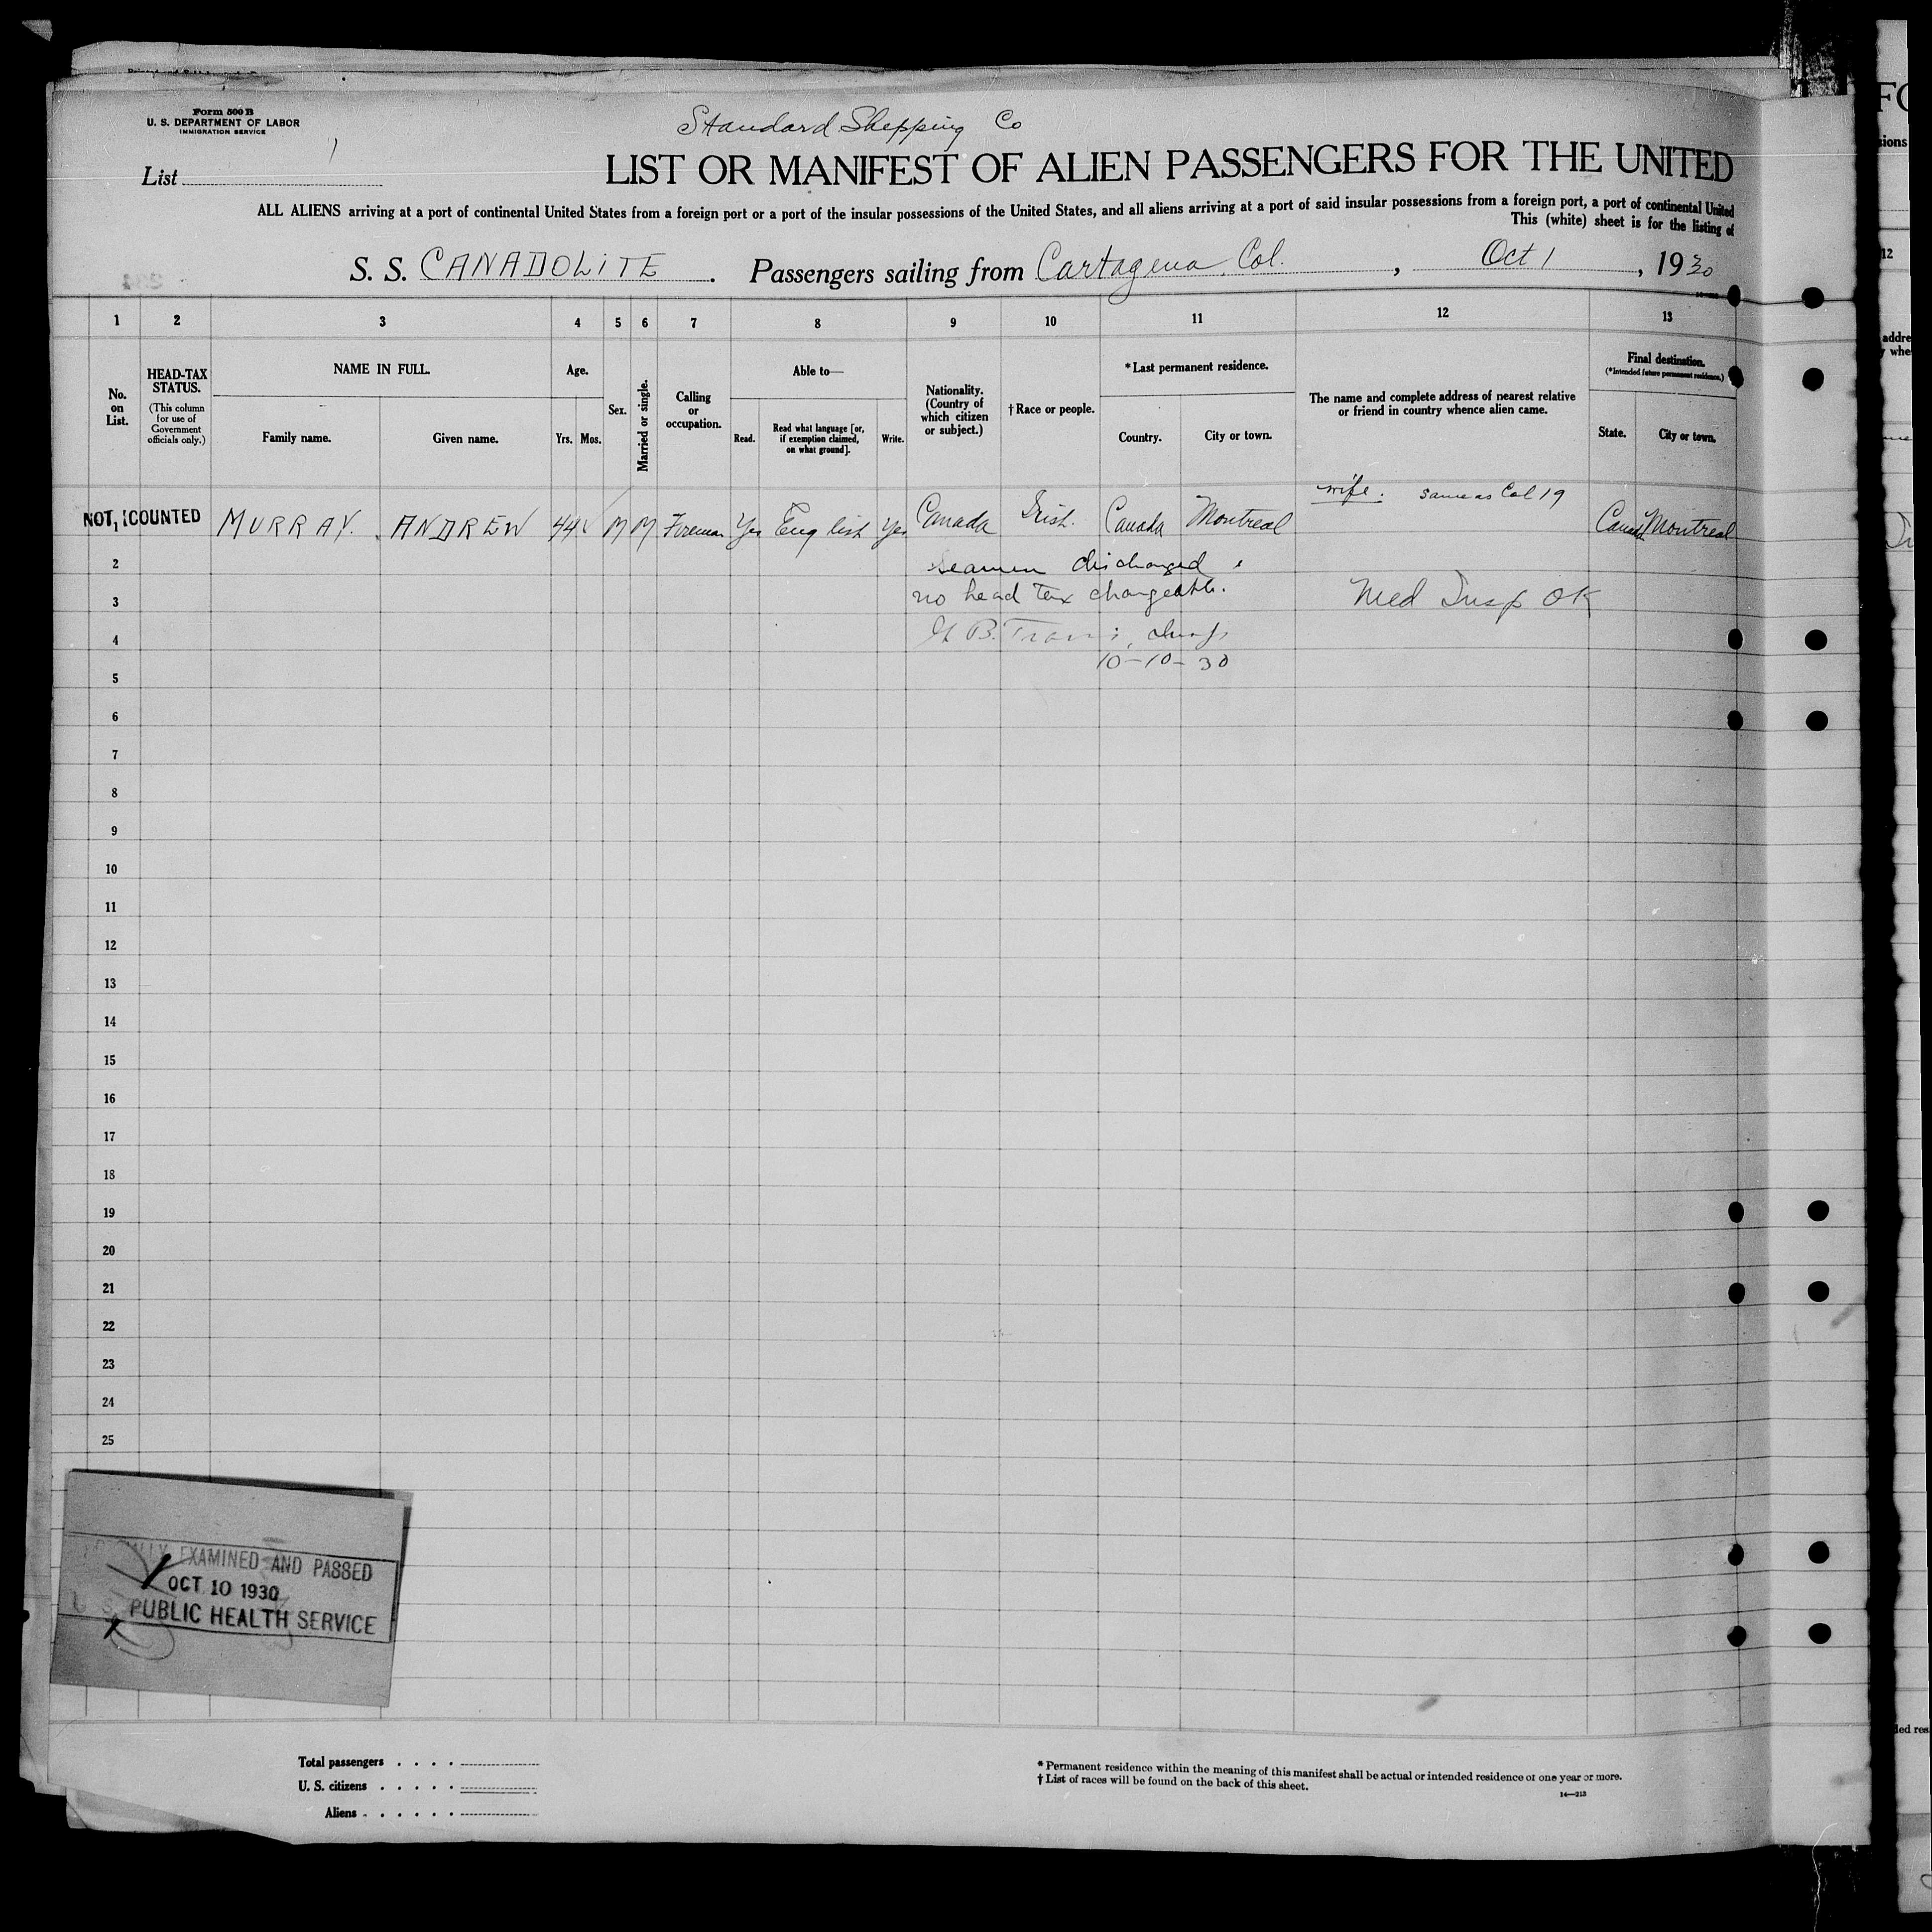 Form 500 B
U. S. DEPARTMENT OF LABOR
IMMIGRATION SERVICE
Standard Shipping Co
List 1
LIST OR MANIFEST OF ALIEN PASSENGERS FOR THE UNITED
ALL ALIENS arriving at a port of continental United States from a foreign port or a port of the insular possessions of the United States, and all aliens arriving at a port of said insular possessions from a foreign port, a port of continental United
This (white) sheet is for the listing of
S. S. CANADOLITE. Passengers sailing from Cartagena, Col., Oct 1, 1930
1 2 3 4 5 6 7 8 9 10 11 12 13
No. on List.
HEAD-TAX STATUS.
(This column for use of Government officials only.)
NAME IN FULL.
Family name. Given name.
Age.
Yrs. Mos.
Sex.
Married or single.
Calling or occupation.
Able to—
Read. Read what language [or, if exemption claimed, on what ground]. Write.
Nationality. (Country of which citizen or subject.)
†Race or people.
*Last permanent residence.
Country. City or town.
The name and complete address of nearest relative or friend in country whence alien came.
Final destination.
(*Intended future permanent residence.)
State. City or town.
wife. same as Col 19
NOT COUNTED MURRAY. ANDREW 44 M M Fireman Yes English Yes Canada Irish. Canada Montreal Canada Montreal
2 Seaman discharged
3 no head tax chargeable. Med Insp OK
4
10-10-30
5
6
7
8
9
10
11
12
13
14
15
16
17
18
19
20
21
22
23
24
25
EXAMINED AND PASSED
OCT 10 1930
PUBLIC HEALTH SERVICE
Total passengers
U. S. citizens
Aliens
* Permanent residence within the meaning of this manifest shall be actual or intended residence of one year or more.
† List of races will be found on the back of this sheet.
14—213